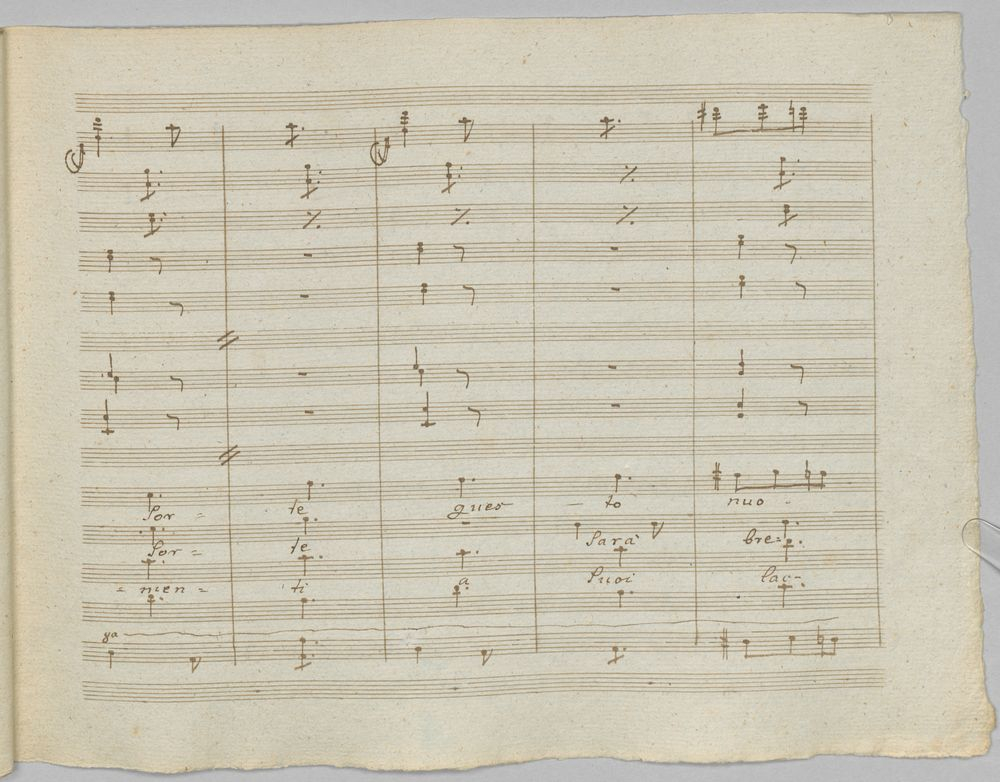 Sor - te ques - to nuo -
Sor - te Sarà bre -
- men - ti a Suoi lac -
8va